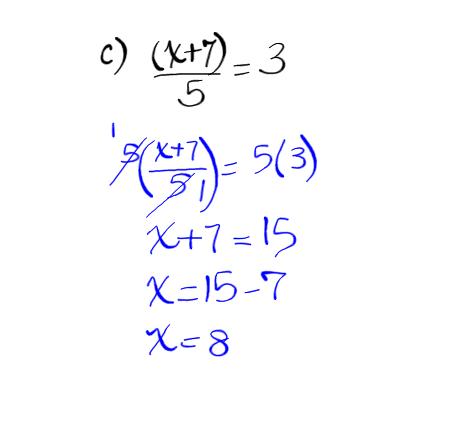 c) (x+7)/5 = 3
1 5((x+7)/5 1) = 5(3)
x+7 = 15
x = 15 - 7
x = 8